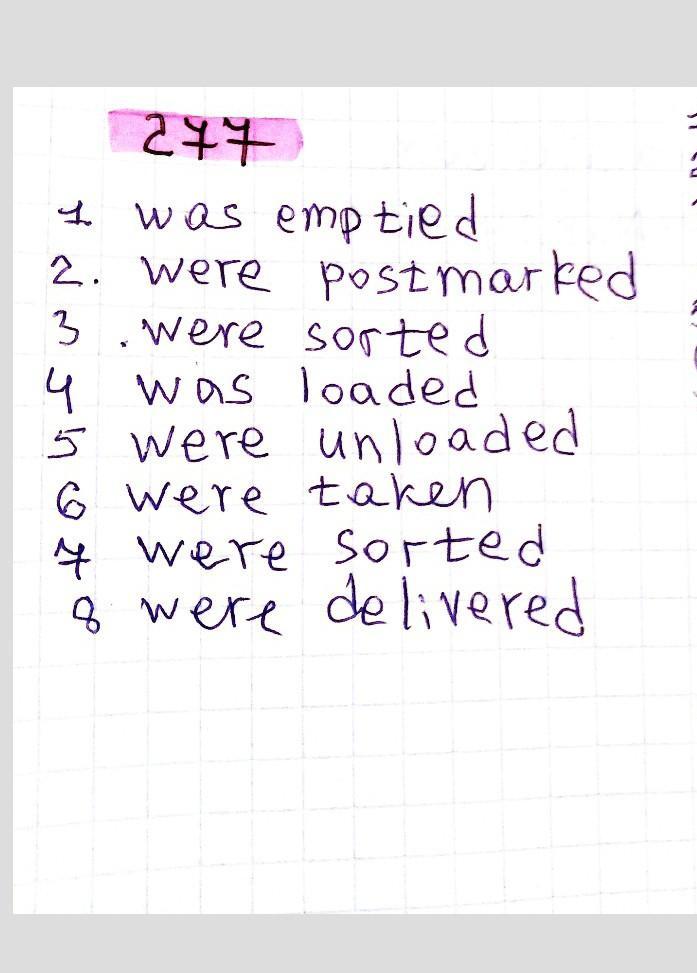 277
1 was emptied
2. were postmarked
3 . were sorted
4 was loaded
5 were unloaded
6 were taken
7 were sorted
8 were delivered